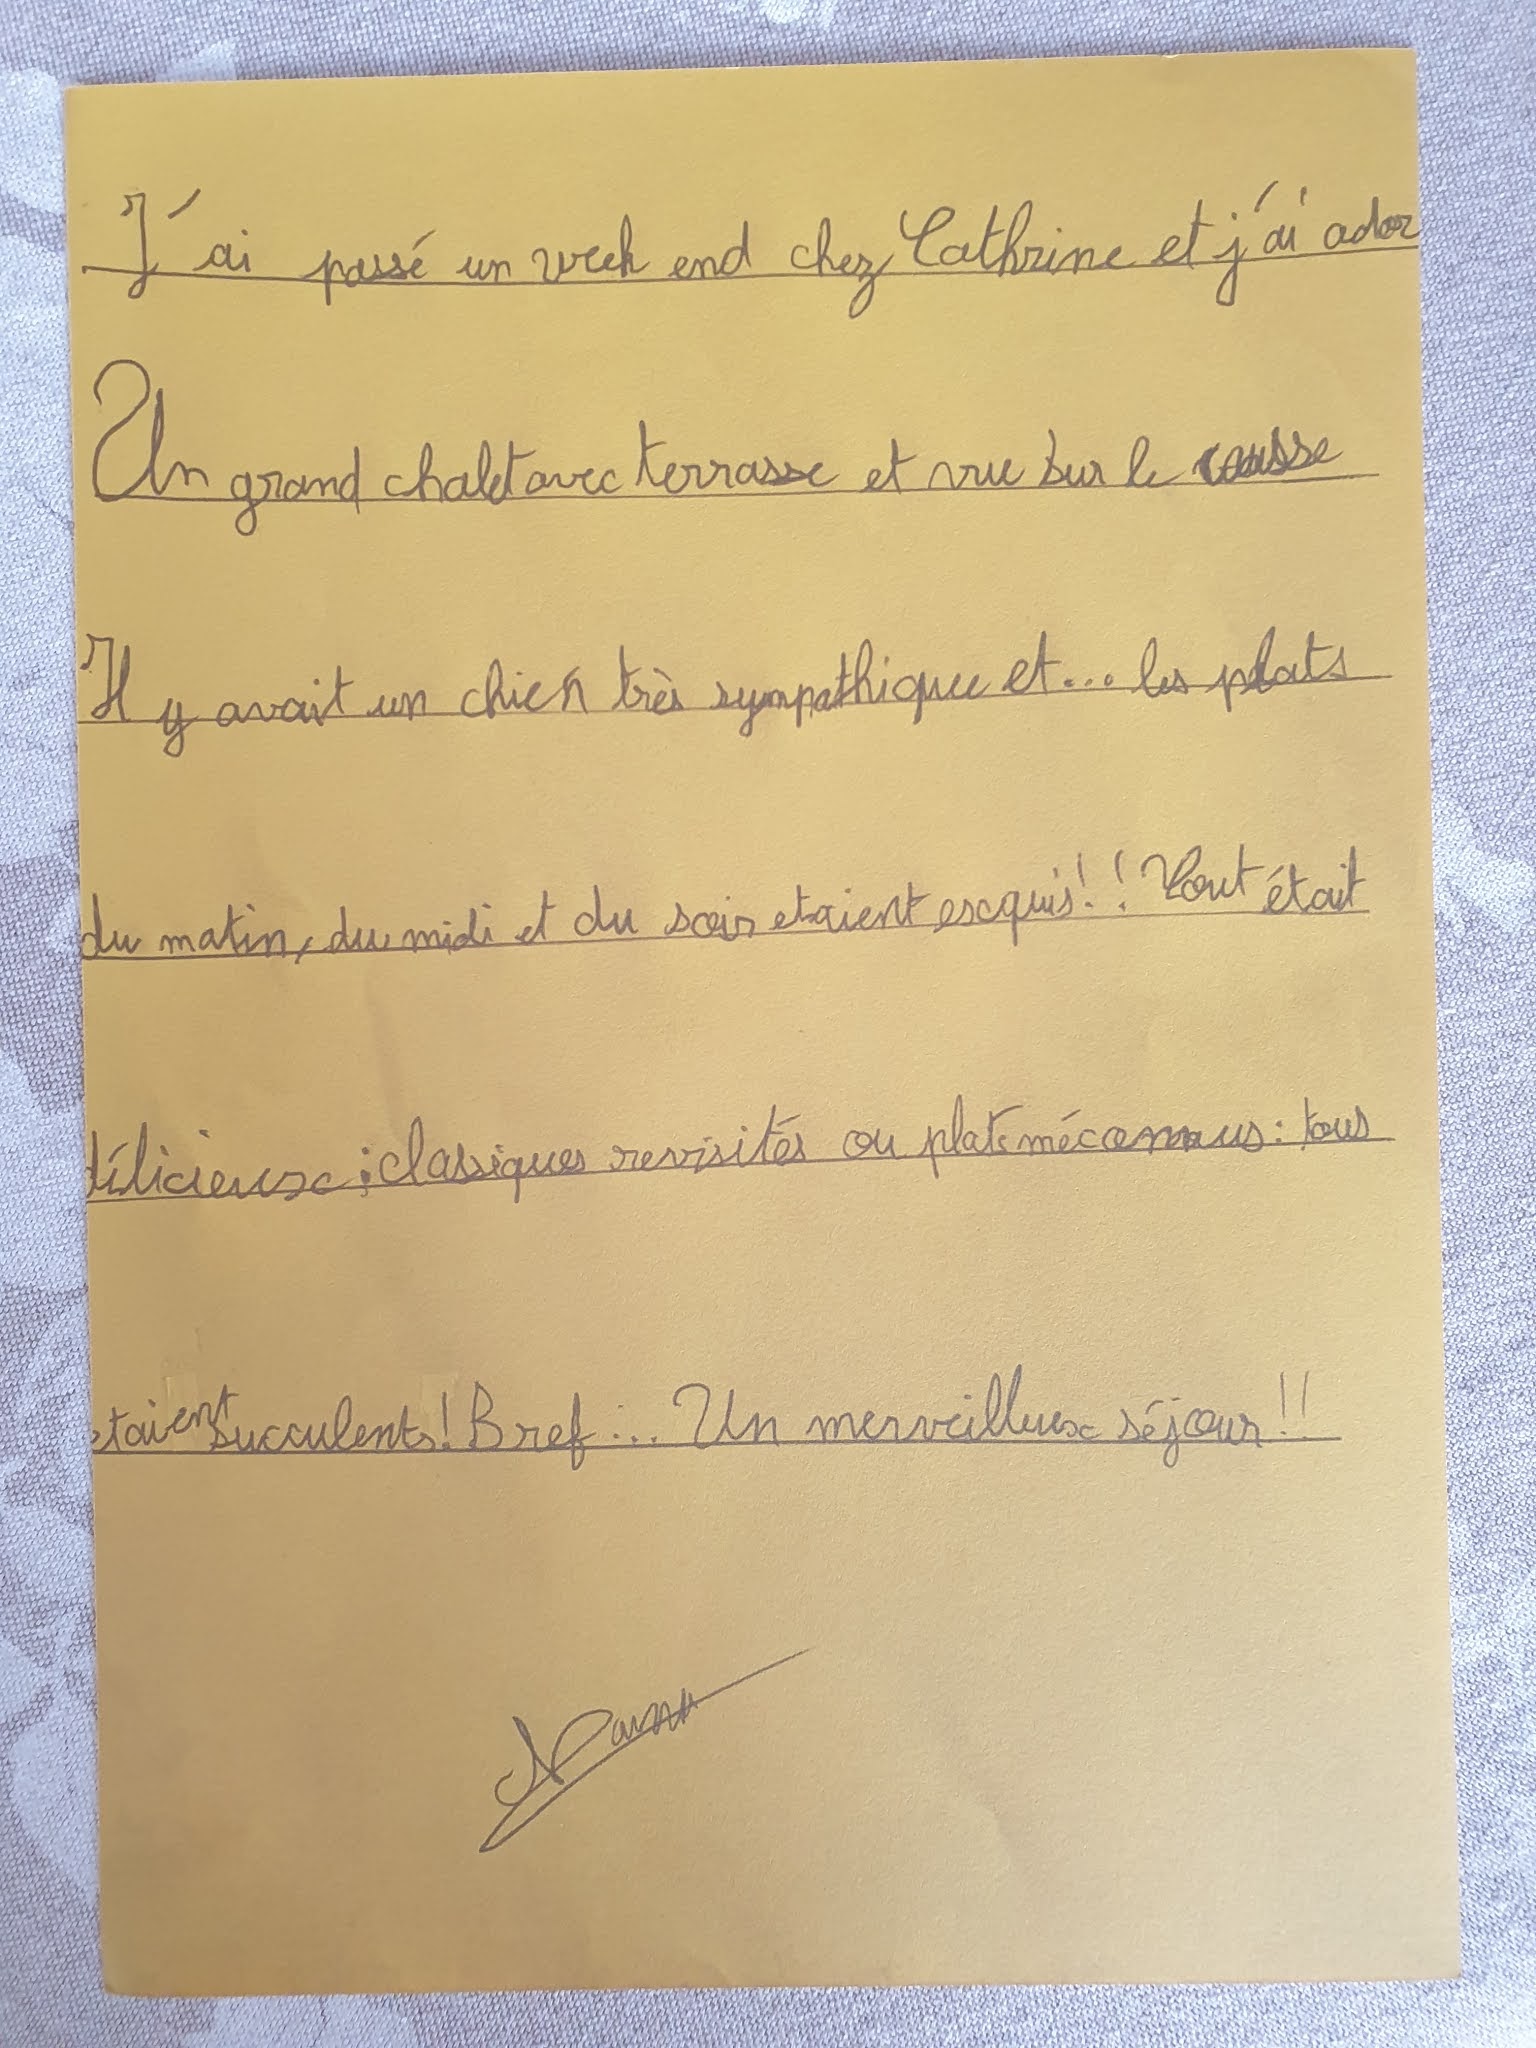 J'ai passé un week end chez Cathrine et j'ai ador
Un grand chalet avec terrasse et vue sur le causse
Il y avait un chien très sympathique et... les plats
du matin, du midi et du soir etaient excquis!! Tout était
délicieux ; classiques revisités ou plats méconnus : tous
etaient succulents! Bref ... Un merveilleux séjour!!